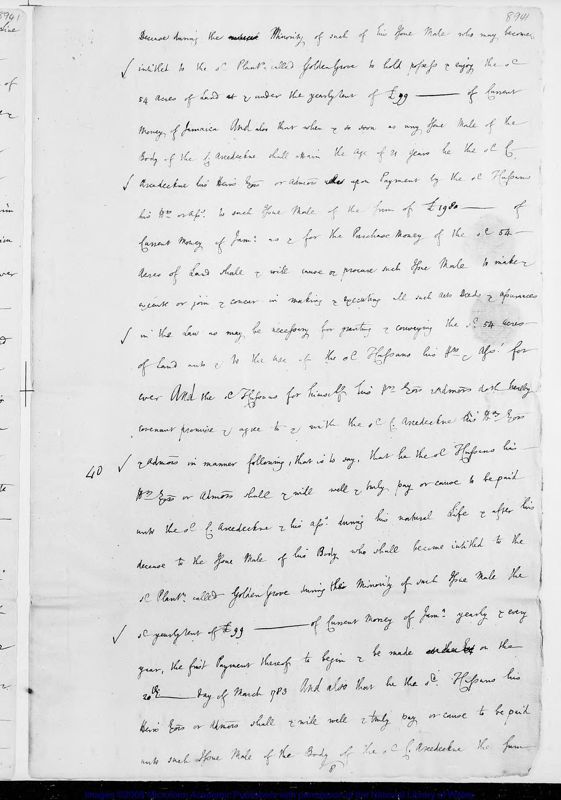 8941
8941
Decease during the Minority of such of his Issue Male who may become
intitled to the sd Plantn called Golden Grove to hold possess & enjoy the sd
54 Acres of Land at & under the yearly rent of £99 — of Current
Money of Jamaica And also that when & so soon as any Issue Male of the
Body of the C Arcedeckne shall attain the Age of 21 years he the sd C
Arcedeckne his Heirs Exors or Admors upon Payment by the sd Hussans
his Hrs or Ass. to such Issue Male of the sum of £1980 — of
Current Money of Jama as & for the Purchase Money of the sd 54
Acres of Land shall & will cause or procure such Issue Male to make &
execute or join & concur in making & executing all such Acts Deeds & Assurances
in the Law as may be necessary for granting & conveying the sd 54 Acres
of Land unto & to the use of the sd Hussans his Hrs & Ass. for
ever And the sd Hussans for himself his Hrs Exors & Admors doth hereby
covenant promise & agree to & with the sd C Arcedeckne his Hrs Exors
40 & Admors in manner following, that is to say, that he the sd Hussans his
Hrs Exors or Admors shall & will well & truly pay or cause to be paid
unto the sd C Arcedeckne & his Ass. during his natural Life & after his
decease to the Issue Male of his Body who shall become intitled to the
sd Plantn called Golden Grove during the Minority of such Issue Male the
sd yearly rent of £99 — of Current Money of Jama yearly & every
year, the first Payment thereof to begin & be made on the
20th — Day of March 1783 And also that he the sd Hussans his
Heirs Exors or Admors shall & will well & truly pay or cause to be paid
unto such Issue Male of the Body of the sd C Arcedeckne the sum
8